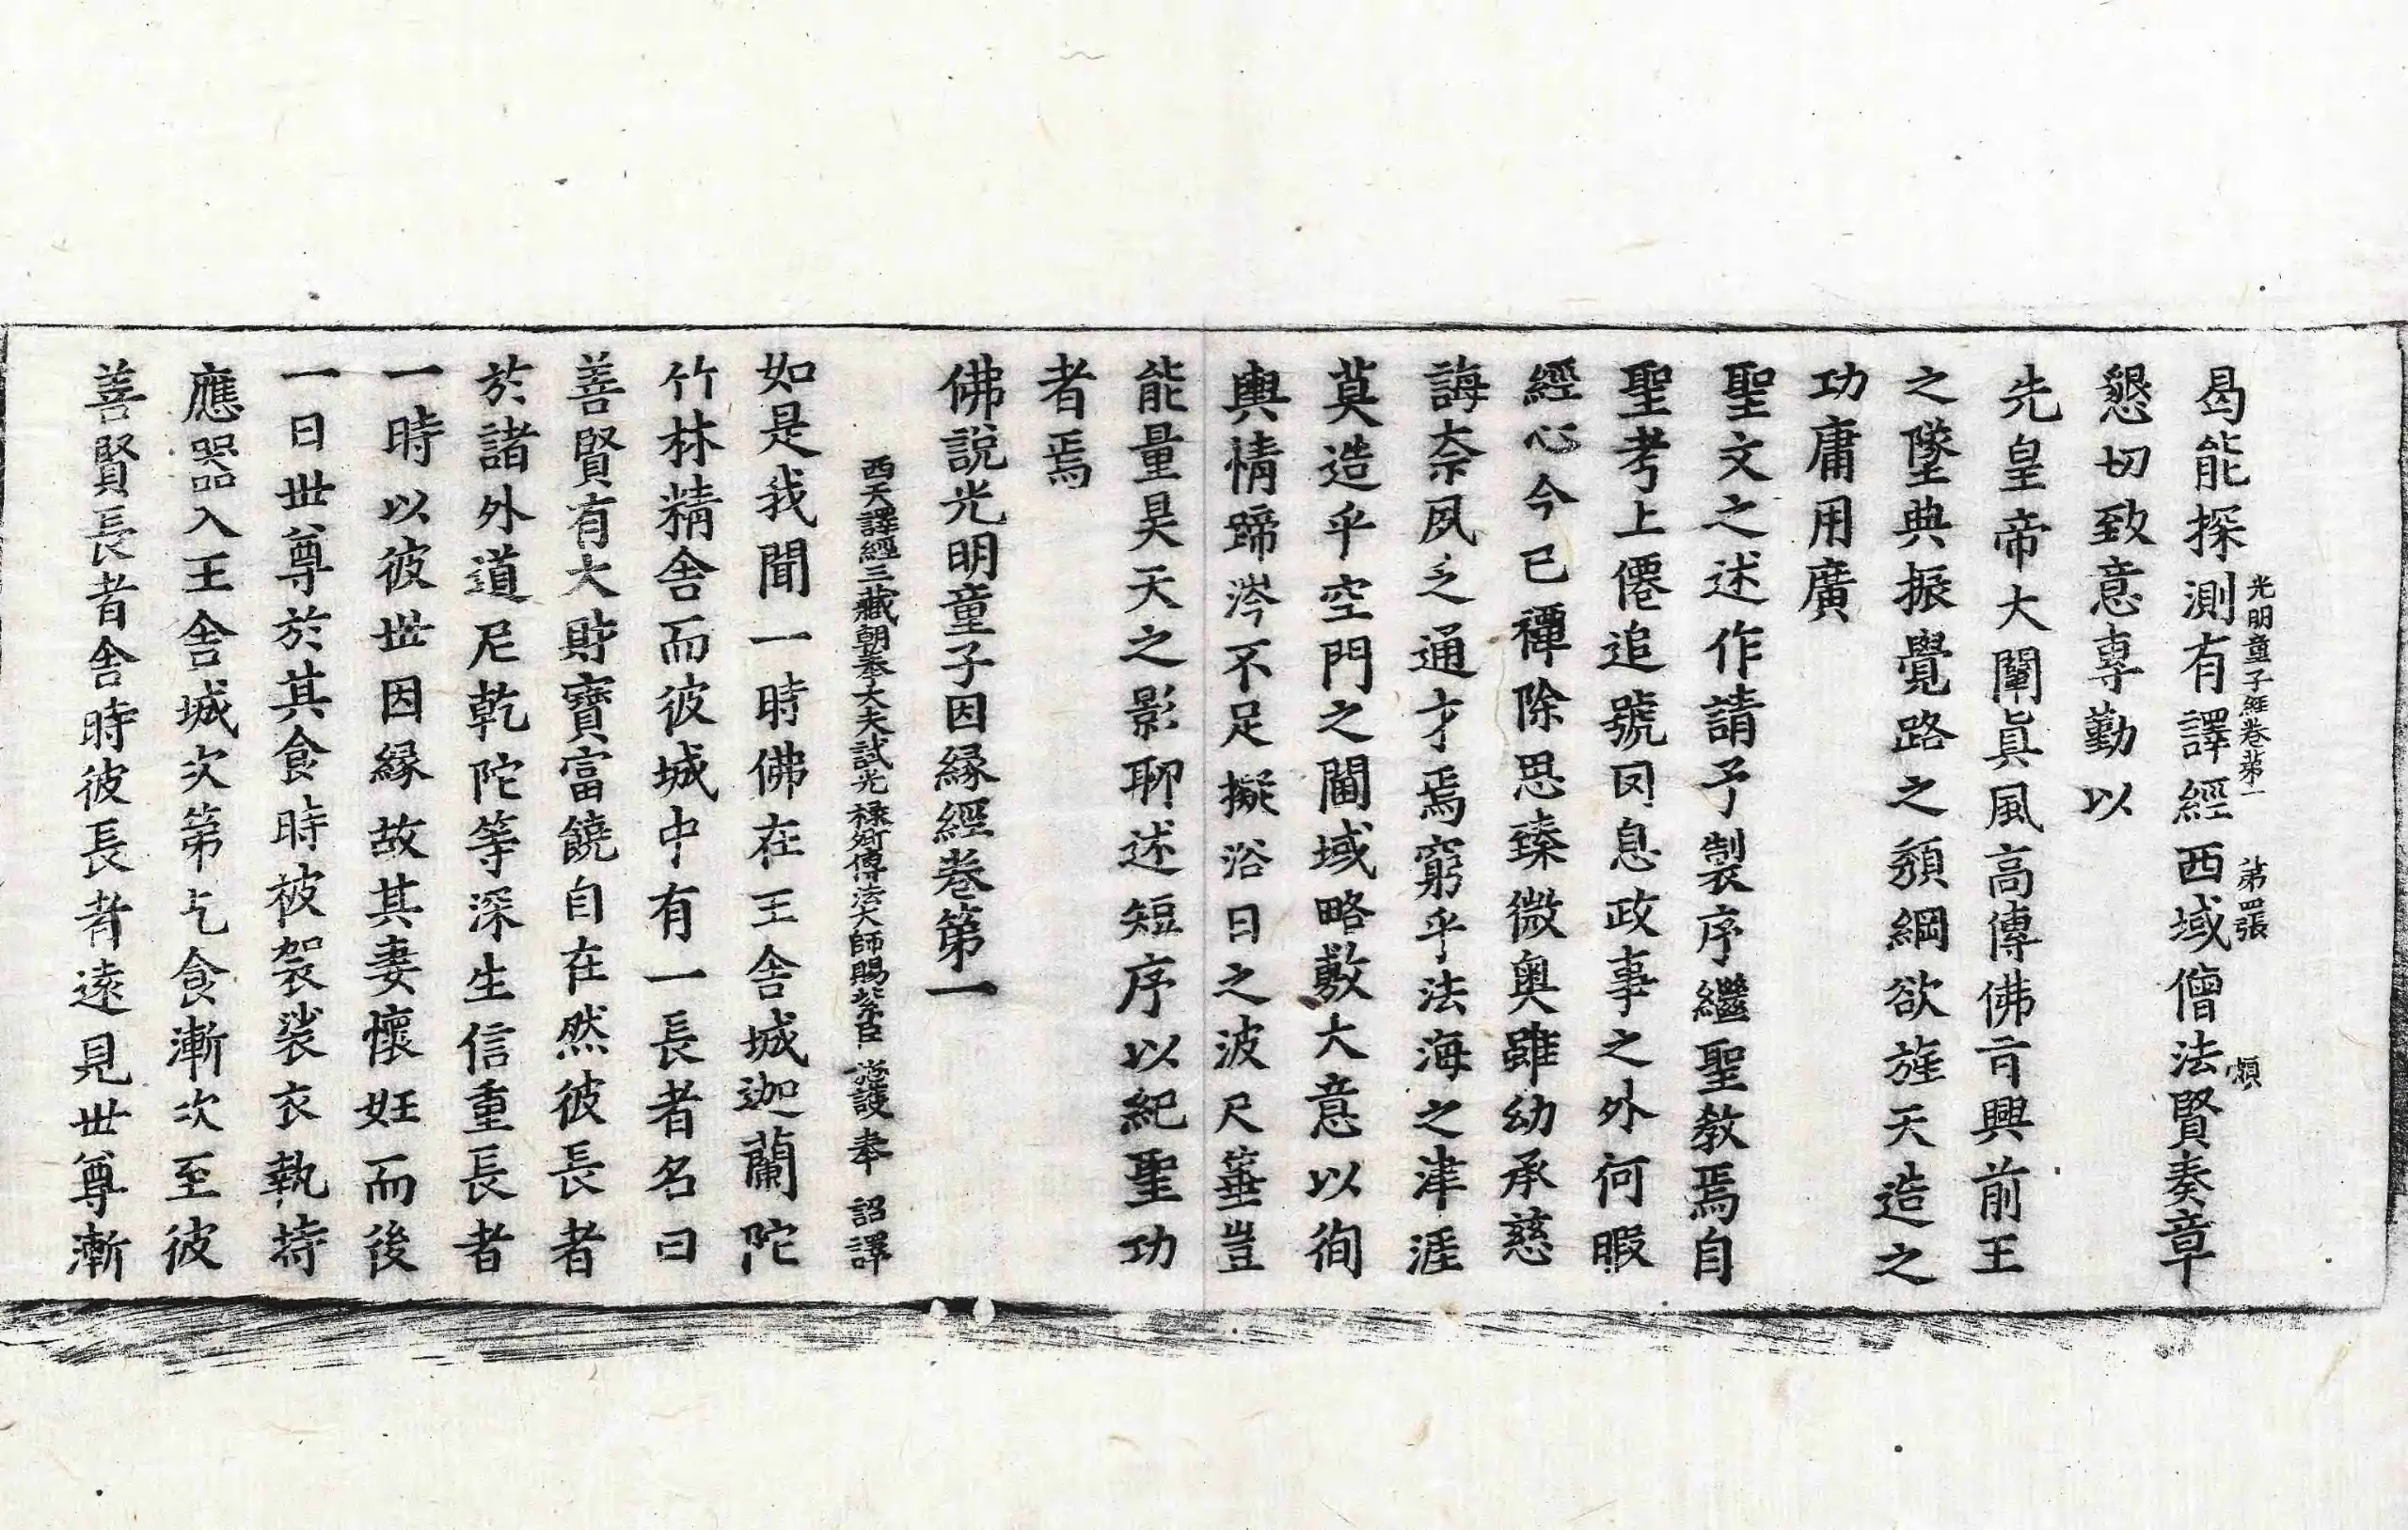 光明童子經卷苐一 第四張 煩
曷能探測有譯經西域僧法賢奏章
懇切致意專勤以
先皇帝大闡眞風高傳佛㫖興前王
之墜典振覺路之頹綱欲旌天造之
功庸用廣
聖文之述作請予製序繼聖教焉自
聖考上僊追號罔息政事之外何暇
經心今已禫除思臻微奧雖幼承慈
誨柰夙乏通才焉窮乎法海之津涯
莫造乎空門之閫域略敷大意以徇
輿情蹄涔不足擬浴日之波尺箠豈
能量昊天之影聊述短序以紀聖功
者焉
佛說光明童子因緣經卷第一
西天譯經三藏朝奉大夫試光祿卿傳法大師賜紫臣 施護 奉 詔譯
如是我聞一時佛在王舍城迦蘭陀
竹林精舍而彼城中有一長者名曰
善賢有大財寶富饒自在然彼長者
於諸外道尼乾陀等深生信重長者
一時以彼世因緣故其妻懷妊而後
一日世尊於其食時被袈裟衣執持
應器入王舍城次第乞食漸次至彼
善賢長者舍時彼長者遠見世尊漸